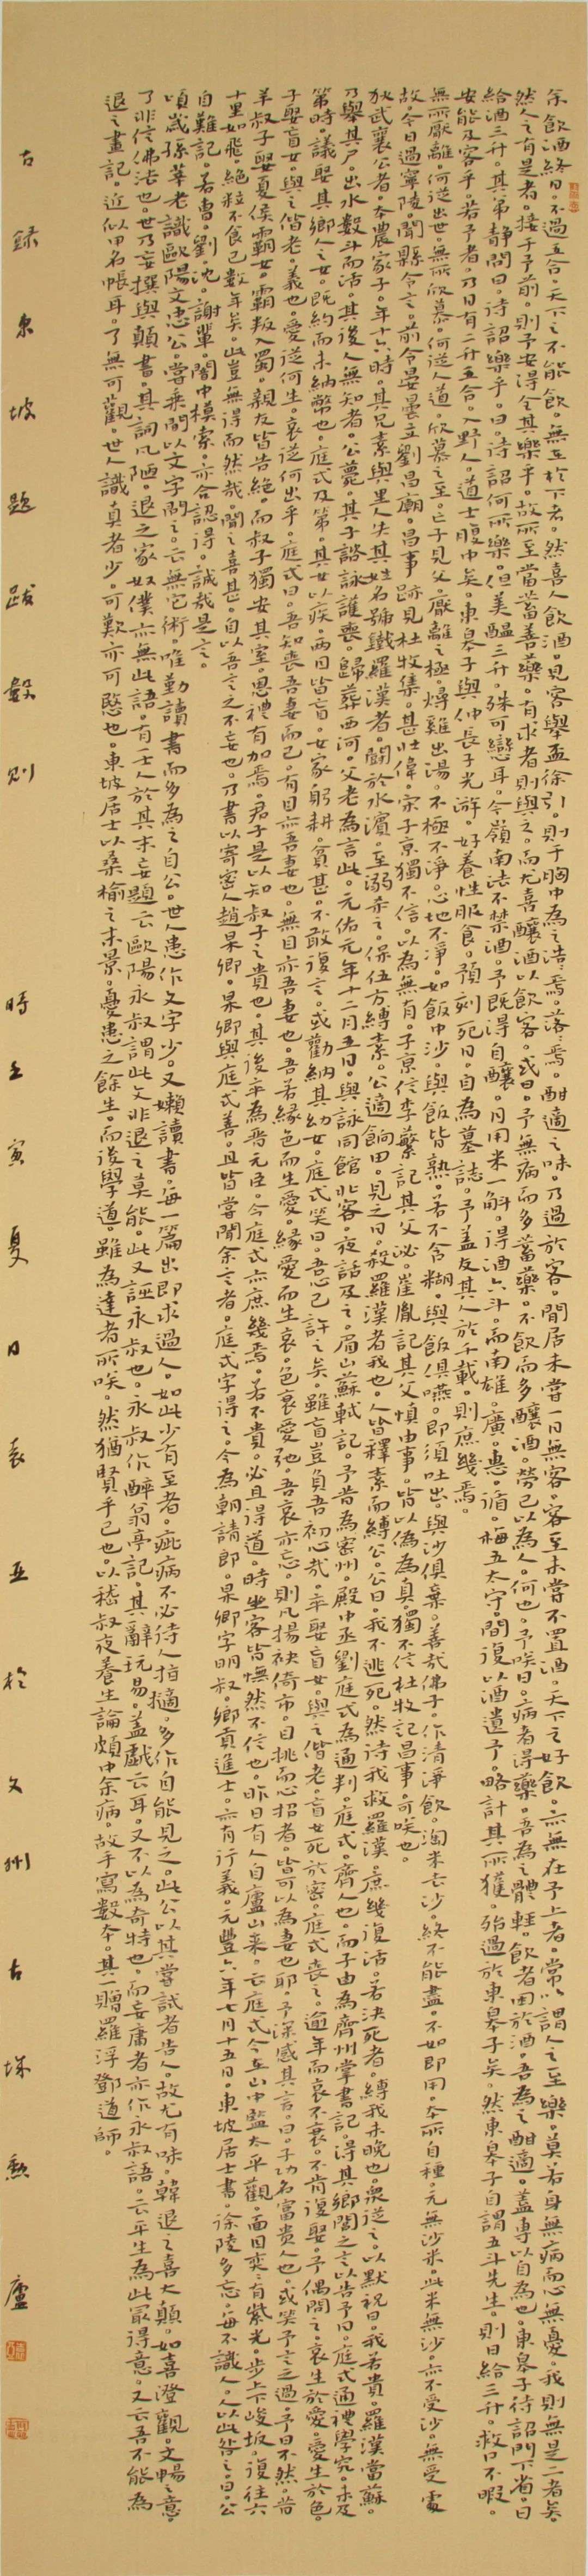 余飲酒終日。不過五合。天下之不能飲。無在於下者。然喜人飲酒。見客舉盃徐引。則予胸中為之浩浩焉。落落焉。酣適之味。乃過於客。閒居未嘗一日無客。客至未嘗不置酒。天下之好飲。亦無在予上者。常以謂人之至樂。莫若身無病而心無憂。我則無是二者矣。
然人之有是者。接于予前。則予安得全其樂乎。故所至當蓄善藥。有求者則與之。而尤喜釀酒以飲客。或曰。予無病而多蓄藥。不飲而多釀酒。勞己以為人。何也。予笑曰。病者得藥。吾為之體輕。飲者困於酒。吾為之酣適。蓋專以自為也。東皋子待詔門下省。日
給酒三升。其弟靜問曰。待詔樂乎。曰。待詔何所樂。但美醞三升。殊可戀耳。今嶺南法不禁酒。予既得自釀。月用米一斛。得酒六斗。而南雄。廣。惠。循。梅五太守。間復以酒遺予。略計其所獲。殆過於東皋子矣。然東皋子自謂五斗先生。則日給三升。救口不暇。
安能及客乎。若予者。乃日有二升五合。入野人。道士腹中矣。東皋子與仲長子光游。好養性服食。預刻死日。自為墓誌。予蓋友其人於千載。則庶幾焉。
無所厭離。何從出世。無所欣慕。何從入道。欣慕之至。亡子見父。厭離之極。燖雞出湯。不極不淨。心地不淨。如飯中沙。與飯皆熟。若不含糊。與飯俱嚥。即須吐出。與沙俱棄。善哉佛子。作清淨飲。淘米去沙。終不能盡。不如即用。本所自種。元無沙米。此米無沙。亦不受沙。無受處
故。今日過寧陵。聞縣令言。前令晏曇立劉昌廟。昌事跡見杜牧集。甚壯偉。宋子京獨不信。以為無有。子京信李蘩記其父泌。崔胤記其父慎由事。皆以偽為真。獨不信杜牧記昌事。可笑也。
狄武襄公者。本農家子。年十六時。其兄素與里人失其姓名號鐵羅漢者。鬭於水濱。至溺杀之。保伍方縛素。公適餉田。見之曰。殺羅漢者我也。人皆釋素而縛公。公曰。我不逃死。然待我救羅漢。庶幾復活。若決死者。縛我未晚也。眾從之。以默祝曰。我若貴。羅漢當蘇。
乃舉其尸。出水數斗而活。其後人無知者。公薨。其子諮詠護喪。歸葬西河。父老為言此。元祐元年十二月五日。與詠同館北客。夜話及之。眉山蘇軾記。予昔為密州。殿中丞劉庭式為通判。庭式。齊人也。而子由為齊州掌書記。得其鄉閭之言以告予曰。庭式通禮學究。未及
第時。議娶其鄉人之女。既約而未納幣也。庭式及第。其女以疾。兩目皆盲。女家躬耕。貧甚。不敢復言。或勸納其幼女。庭式笑曰。吾心已許之矣。雖盲豈負吾初心哉。卒娶盲女。與之偕老。盲女死於密。庭式喪之。逾年而哀不衰。不肯復娶。予偶問之。哀生於愛。愛生於色。
子娶盲女。與之偕老。義也。愛從何生。哀從何出乎。庭式曰。吾知喪吾妻而已。有目亦吾妻也。無目亦吾妻也。吾若緣色而生愛。緣愛而生哀。色衰愛弛。吾哀亦忘。則凡揚袂倚市。目挑而心招者。皆可以為妻也耶。予深感其言。曰。子功名富貴人也。或笑予言之過。予曰不然。昔
羊叔子娶夏侯霸女。霸叛入蜀。親友皆告絕。而叔子獨安其室。恩禮有加焉。君子是以知叔子之貴也。其後卒為晉元臣。今庭式亦庶幾焉。若不貴。必且得道。時坐客皆憮然不信也。昨日有人自廬山來。云庭式今在山中監太平觀。面目奕奕有紫光。步上下峻坂。復往六
十里如飛。絕粒不食已數年矣。此豈無得而然哉。聞之喜甚。自以吾言之不妄也。乃書以寄密人趙杲卿。杲卿與庭式善。且皆嘗聞余言者。庭式字得之。今為朝請郎。杲卿字明叔。鄉貢進士。亦有行義。元豐六年七月十五日。東坡居士書。徐陵多忘。每不識人。人以此咎之。曰。公
自難記。若曹。劉。沈。謝輩。闇中模索。亦合認得。誠哉是言。
頃歲孫莘老識歐陽文忠公。嘗乘間以文字問之。云無它術。唯勤讀書而多為之自公。世人患作文字少。又嬾讀書。每一篇出即求過人。如此少有至者。疵病不必待人指擿。多作自能見之。此公以其嘗試者告人。故尤有味。韓退之喜大顛。如喜澄觀。文暢之意。
了非信佛法也。世乃妄撰與顛書。其詞凡陋。退之家奴僕亦無此語。有士人於其末妄題云歐陽永叔謂此文非退之莫能。此又誣永叔也。永叔作醉翁亭記。其辭玩易。蓋戲云耳。又不以為奇特也。而妄庸者亦作永叔語。云平生為此最得意。又云吾不能為
退之畫記。近似甲名帳耳。了無可觀。世人識真者少。可歎亦可愍也。東坡居士以桑榆之末景。憂患之餘生。而後學道。雖為達者所笑。然猶賢乎已也。以嵇叔夜養生論頗中余病。故手寫數本。其一贈羅浮鄧道師。
古錄東坡題跋數則 時壬寅夏日袁亚於文州古垛勲廬